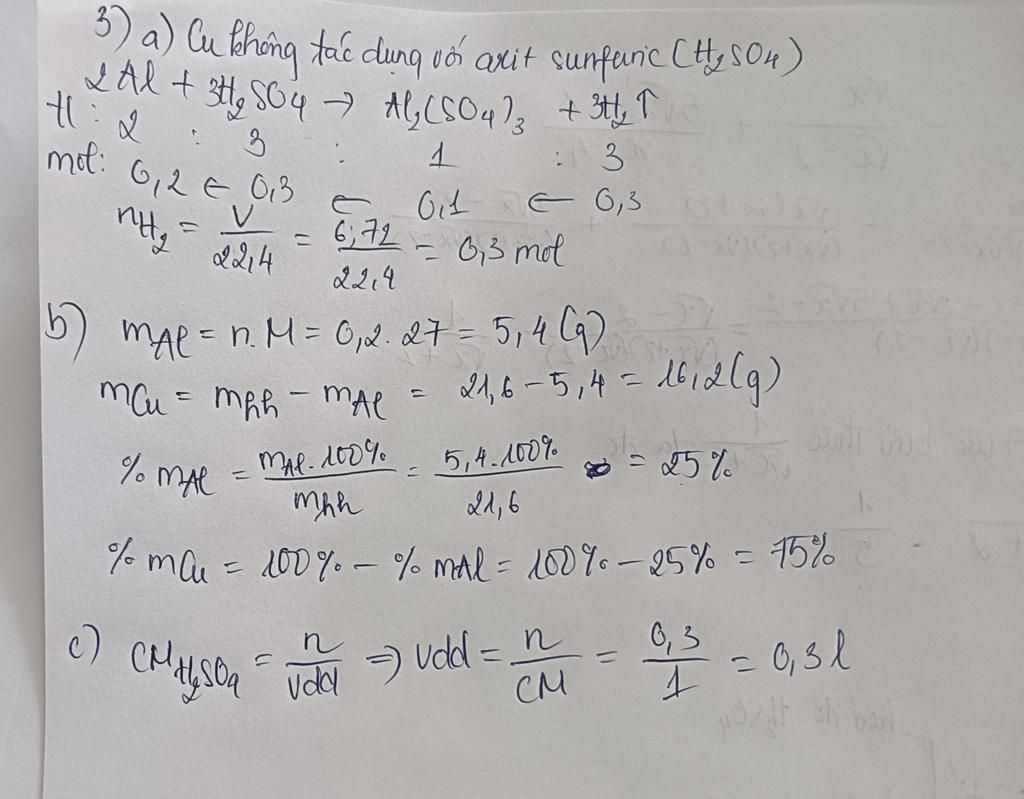 3) a) Cu không tác dụng với axit sunfuric (H₂SO₄)
2Al + 3H₂SO₄ → Al₂(SO₄)₃ + 3H₂↑
tl: 2 : 3 : 1 : 3
mol: 0,2 ← 0,3 ← 0,1 ← 0,3
nH₂ = V/22,4 = 6,72/22,4 = 0,3 mol
b) mAl = n.M = 0,2.27 = 5,4 (g)
mCu = mhh − mAl = 21,6 − 5,4 = 16,2 (g)
% mAl = mAl.100%/mhh = 5,4.100%/21,6 = 25%
% mCu = 100% − % mAl = 100% − 25% = 75%
c) CM H₂SO₄ = n/Vdd ⇒ Vdd = n/CM = 0,3/1 = 0,3 l